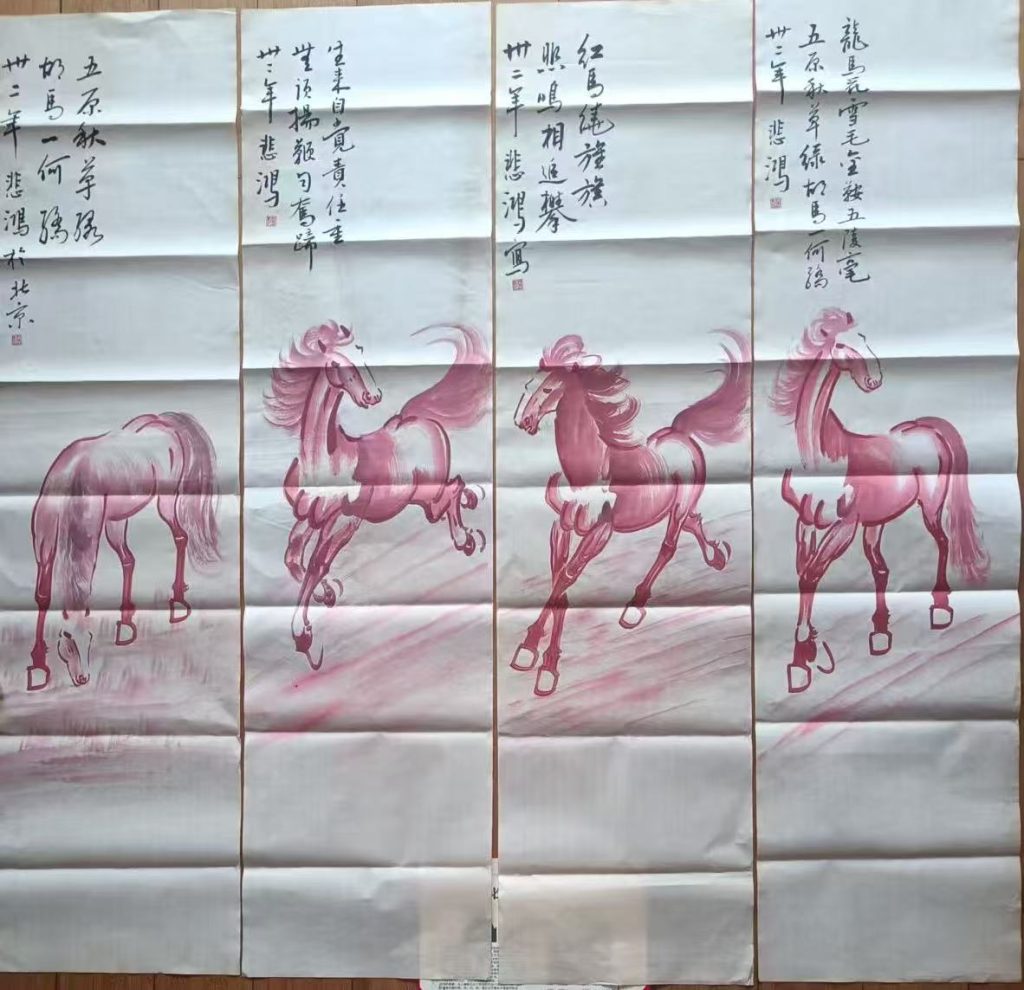 龍馬花雪毛金鞍五陵毫
五原秋草綠胡馬一何驕
卅二年 悲鴻
紅馬繞旌旗
鳴相追攀
卅二年 悲鴻寫
生来自覺責任重
無須揚鞭自奮蹄
卅二年 悲鴻
五原秋草綠
胡馬一何驕
卅二年 悲鴻於北京